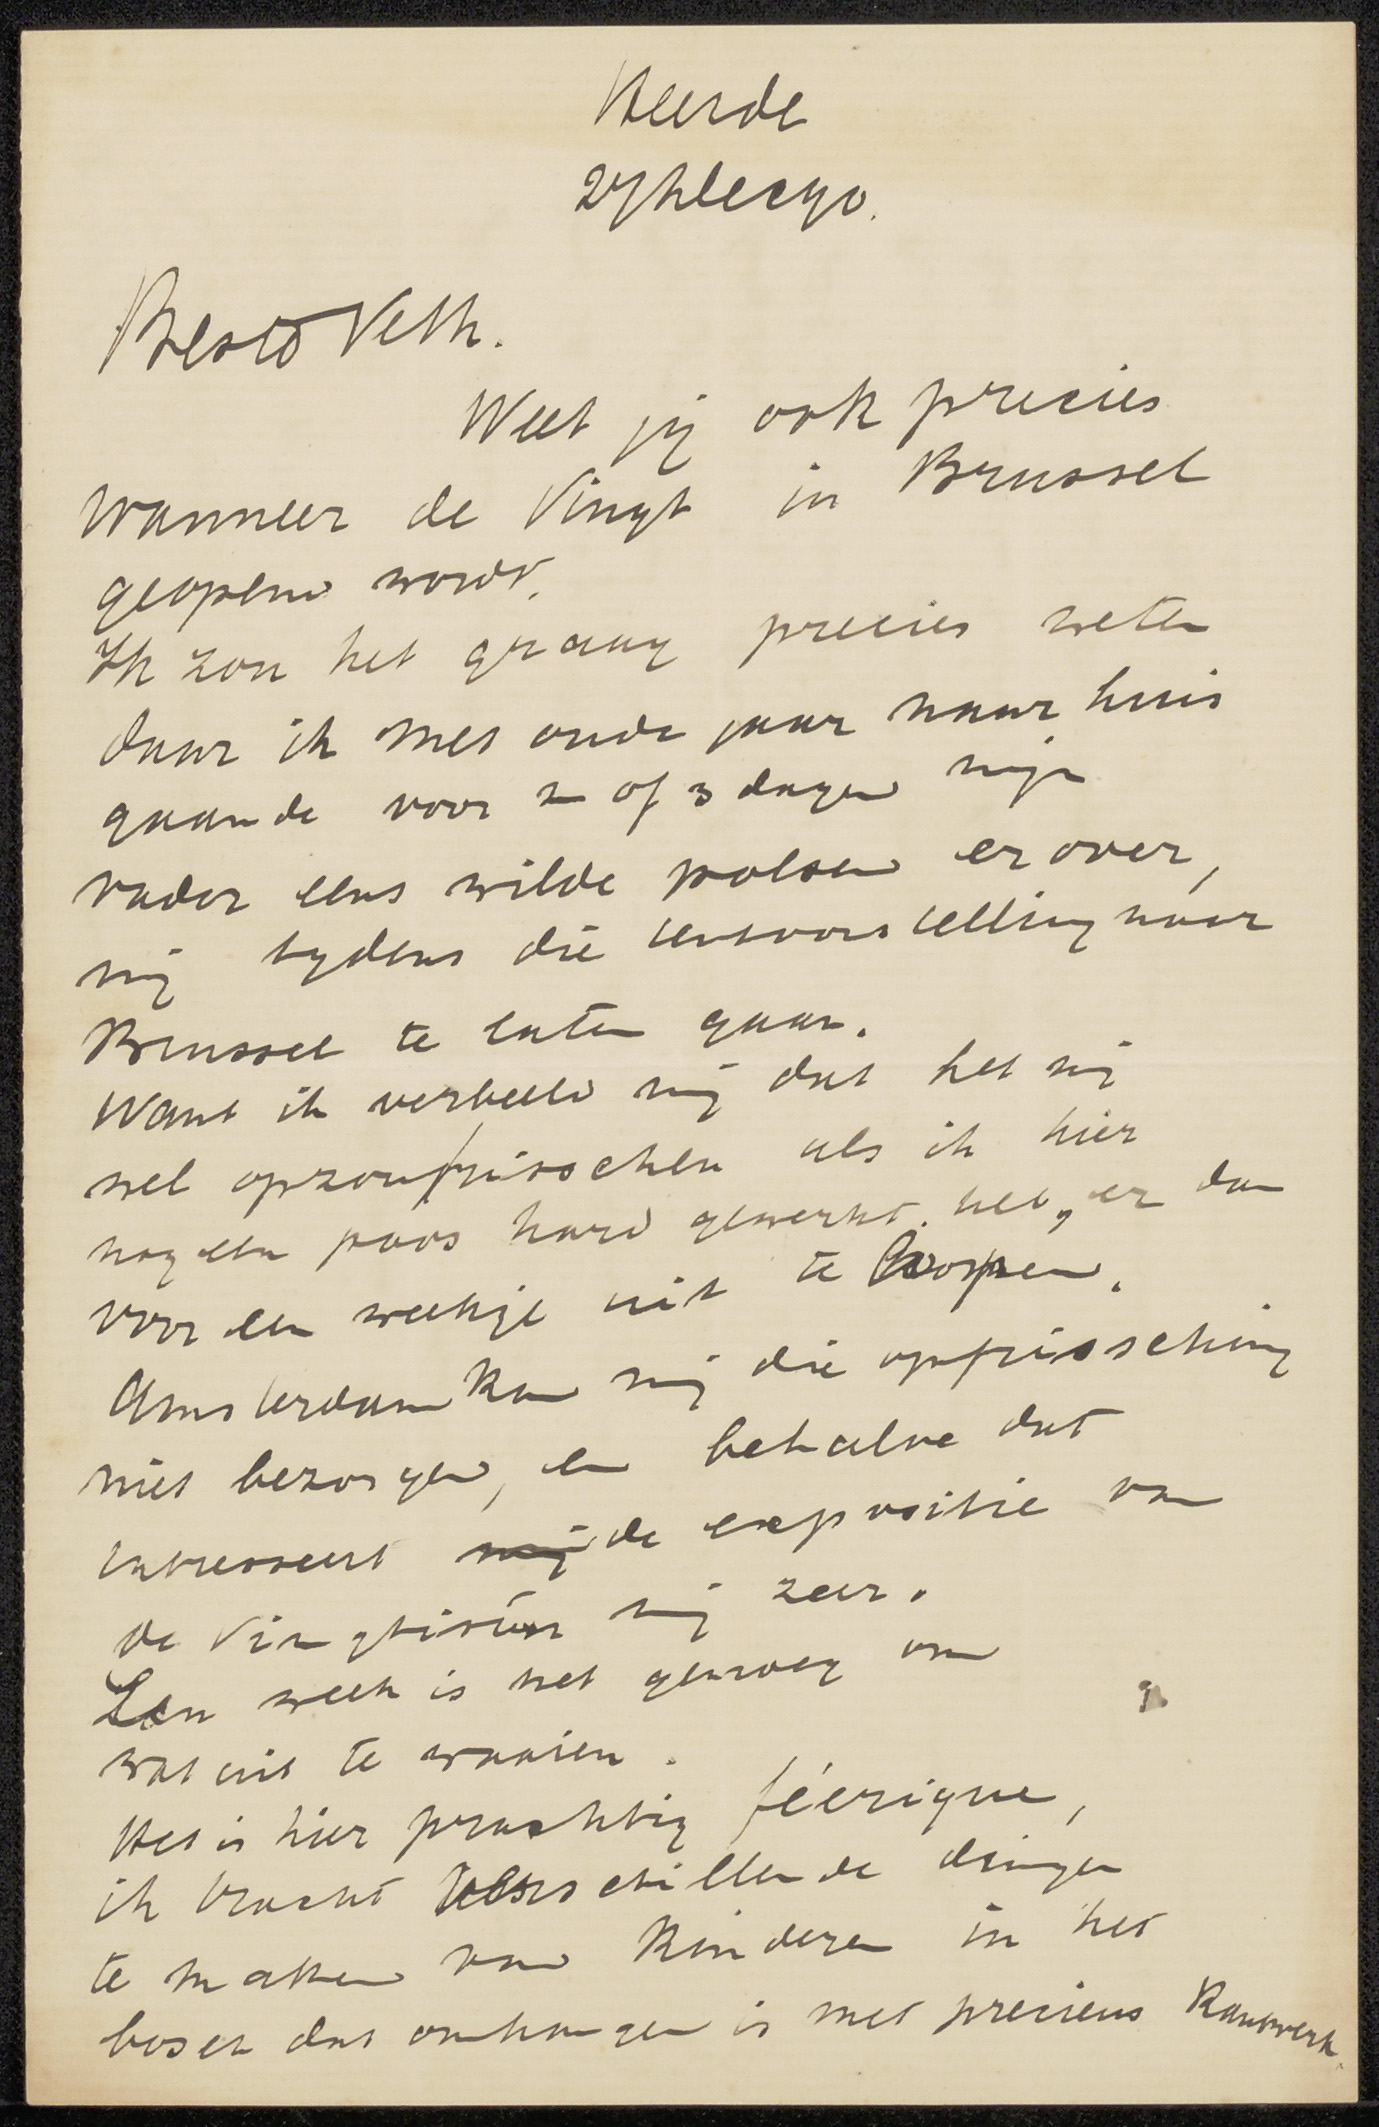 Heerde
27 Dec 90.
Beste Veth.
Weet jij ook precies
wanneer de Vingt in Brussel
geopend wordt.
Ik zou het graag precies weten
daar ik met oude jaar naar huis
gaande voor 2 of 3 dagen mijn
vader eens wilde polsen er over,
mij tydens die tentoonstelling naar
Brussel te laten gaan.
Want ik verbeeld mij dat het mij
wel opzou frisschen als ik hier
nog een poos hard gewerkt heb, er dan
voor een weekje uit te loopen.
Amsterdam kan mij die opfrissching
niet bezorgen, en behalve dat
intresseert mij de expositie van
de Vingtisten mij zeer.
Een week is net genoeg om
wat uit te waaien.
Het is hier prachtig féerique,
ik tracht verschillende dingen
te maken van kinderen in het
bosch dat omhangen is met precieus kantwerk.